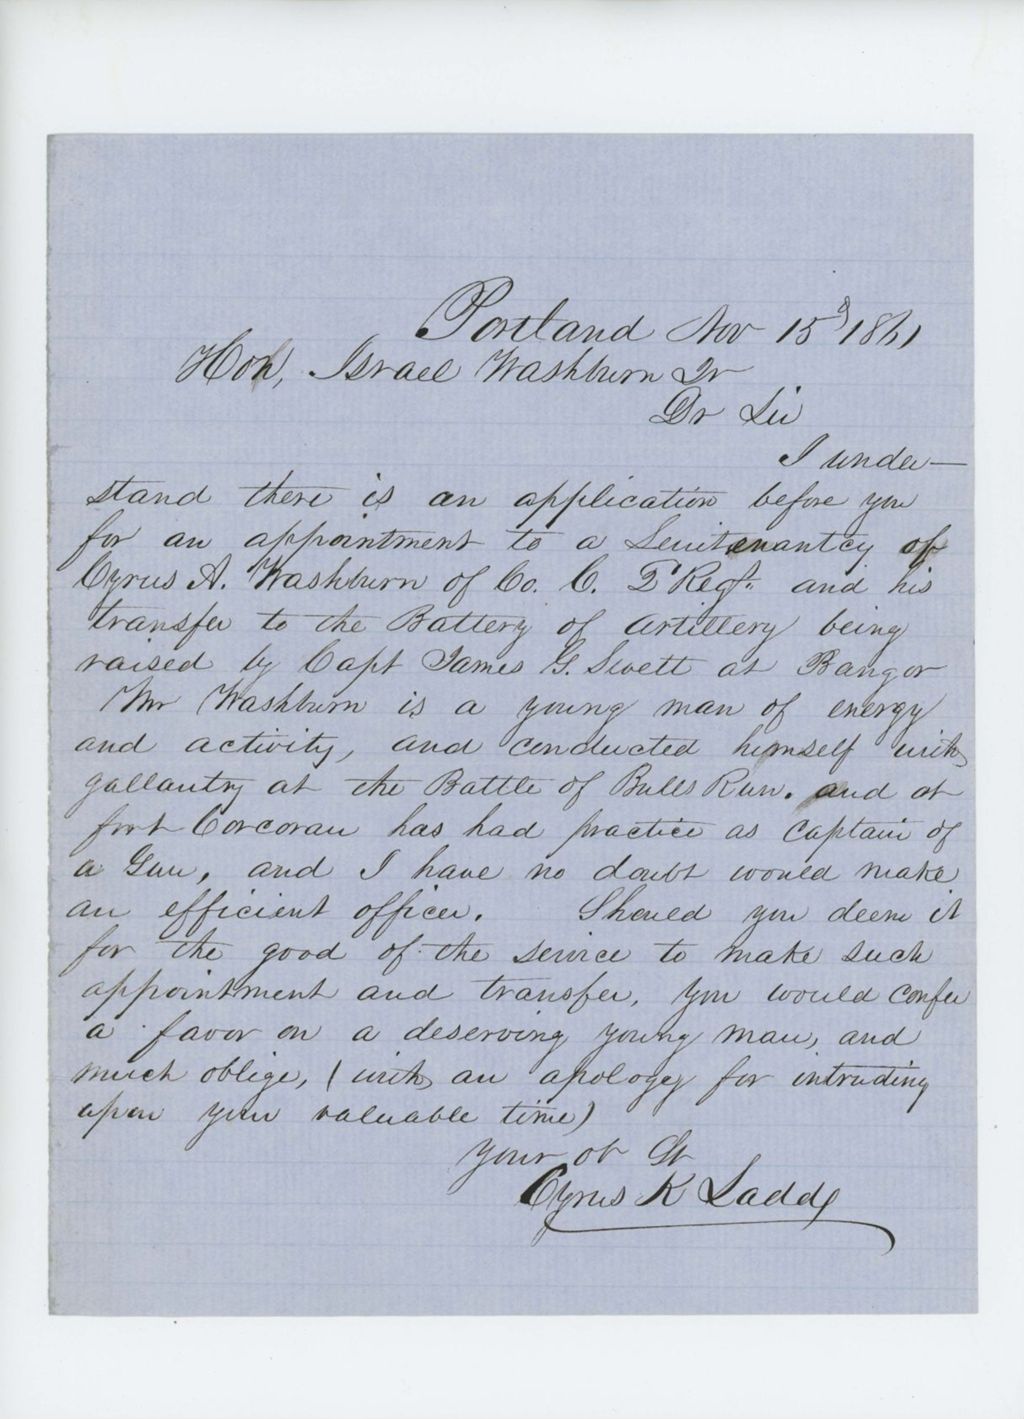 Portland Nov 15d 1861
Hon, Israel Washburn Jr
Dr Sir
I under—
stand there is an application before you
for an appointment to a Leuitenantcy of
Cyrus A. Washburn of Co. C. Regt. and his
transfer to the Battery of artillery being
raised by Capt James G. Swett at Bangor
Mr Washburn is a young man of energy
and activity, and conducted himself with
gallantry at the Battle of Bulls Run. and at
fort Corcoran has had practice as Captain of
a Gun, and I have no doubt would make
an efficient officer. Should you deem it
for the good of the service to make such
appointment and transfer, you would confer
a favor on a deserving young man, and
much oblige, (with an apology for intruding
upon your valuable time)
Your ob St
Cyrus K Ladd